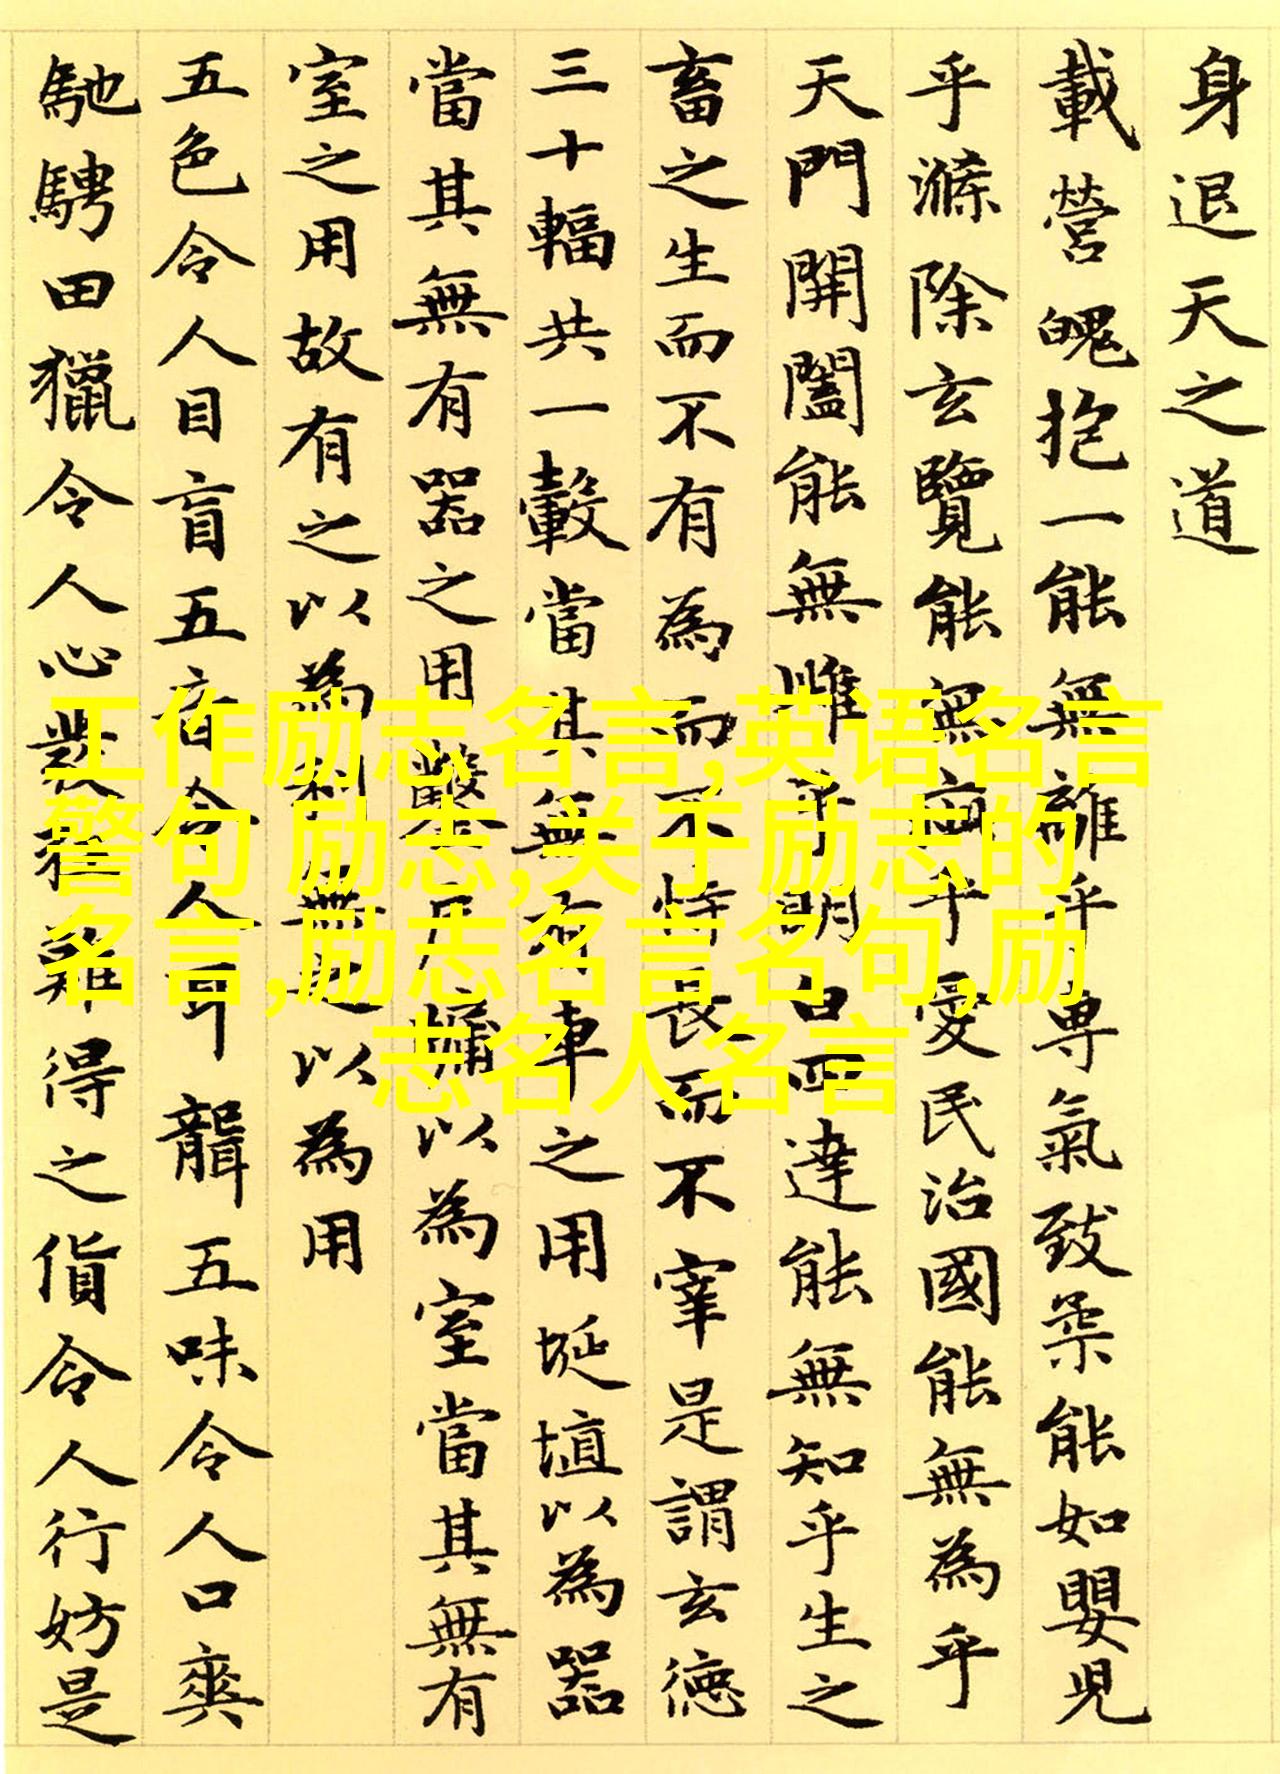 身退天之道
載營魄抱一能無離乎專氣致柔能如嬰児
乎滌除玄覽能無疵乎愛民治國能無為乎
天門開闔能無雌乎明白四達能無知乎生之
畜之生而不有為而不恃長而不宰是謂玄德
三十輻共一轂當其無有車之用埏埴以為器
當其無有器之用鑿戶牖以為室當其無有
室之用故有之以為利無之以為用
五色令人目盲五音令人耳聾五味令人口爽
馳騁田獵令人心發狂難得之貨令人行妨是
工作励志名言,英语名言
警句 励志,关于励志的
名言,励志名言名句,励
志名人名言